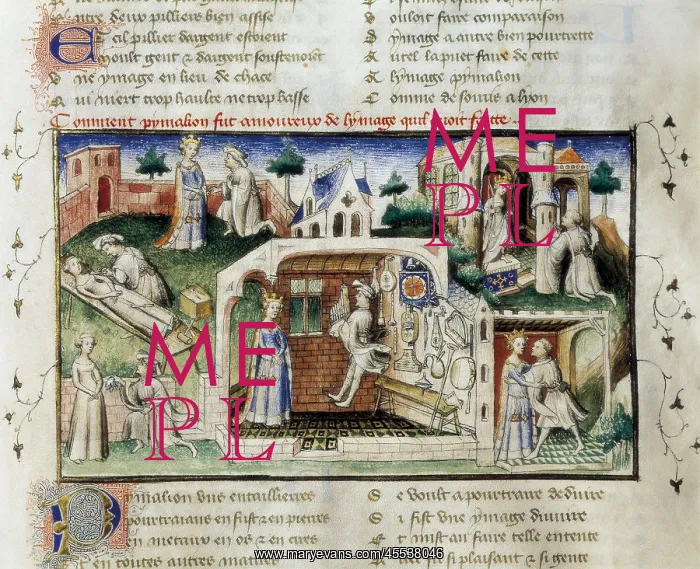 entre deux pilliers bien assise
E cil pillier dargent estoient
moult gent & dargent soustenoient
v ne ymage en lieu de chace
Q ui niert trop haulte ne trop basse
v oulsit faire comparaison
D ymage a autre bien pourtrette
A utel la puet faire de cette
A lymage pymalion
C omme de souris a lyon
C omment pymalion fut amoureux de lymage quil avoit fette
ME
PL
ME
PL
P ymalion uns entaillierres
pourtraians en fust & en pierres
en metaux en os & en cires
en toutes autres matires
S e voult a pourtraire deduire
S i fist une ymage divuire
E t mist au faire telle entente
si plaisant & si gente
www.maryevans.com/45538046